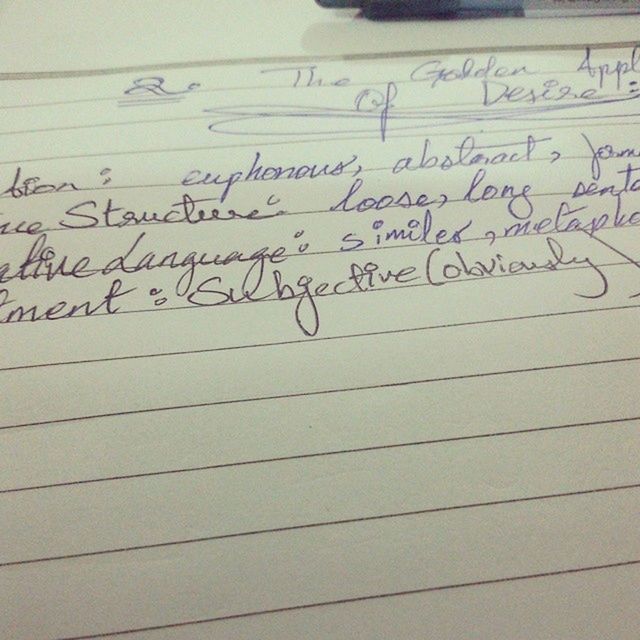 2. The Golden Appl
Of Desire:
tion: euphonous, abstract, form
nce Structure: loose, long senta
ative Language: similes, metapho
tment: Subjective (obviously)